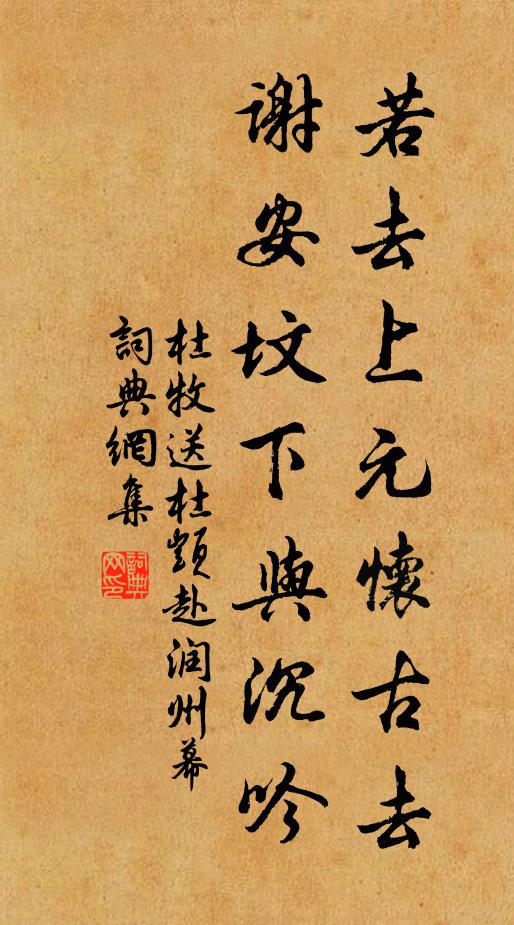 若去上元懷古去
謝安墳下與沉吟
杜牧送杜顗赴润州幕
詞典網集
詞典网印